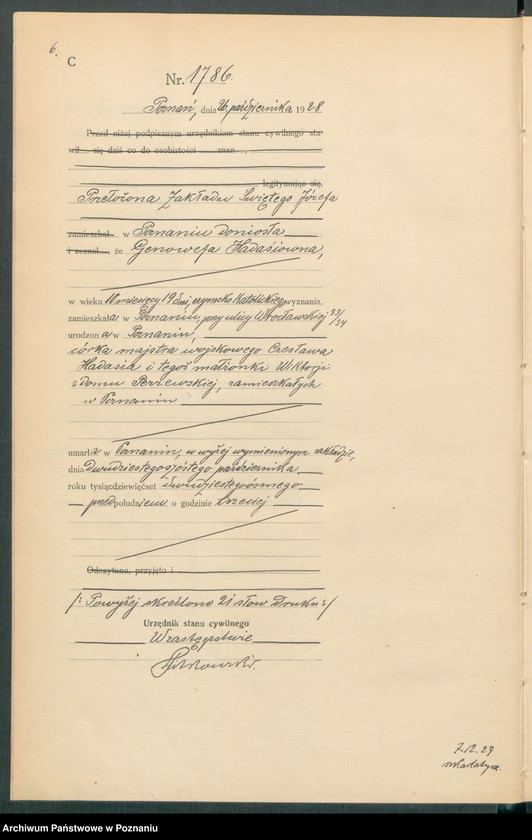 6.
C
Nr. 1786.
Poznań, dnia 26 października 1928
Przed niżej podpisanym urzędnikiem stanu cywilnego sta-
wił się dziś co do osobistości znan
legitymując się,
Przełożona Zakładu Świętego Józefa
zamieszkał w Poznaniu doniosła
i zeznał, że Genowefa Hadasiówna,
w wieku 10 miesięcy 19 dni, rzymsko katolickiego wyznania,
zamieszkała w Poznaniu, przy ulicy Wrocławskiej 33/34
urodzona w Poznaniu,
córka majstra wojskowego Czesława
Hadasia i tegoż małżonki Wiktorji
z domu Perzewskiej, zamieszkałych
w Poznaniu
umarła w Poznaniu, w wyżej wymienionym zakładzie,
dnia dwudziestego szóstego października
roku tysiącdziewięćset dwudziestego ósmego
przed południem o godzinie trzeciej
Odczytano, przyjęto i
/: Powyżej skreślono 21 słów druku :/
Urzędnik stanu cywilnego
W zastępstwie
7.12.27
Archiwum Państwowe w Poznaniu